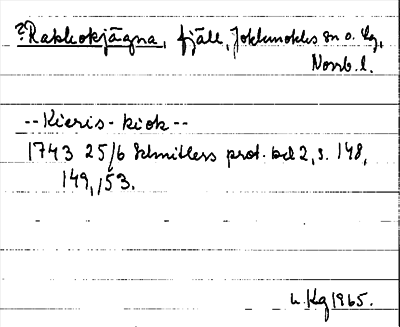 ?Rakkokjågna, fjäll, Jokkmokks sn o. Kg,
Norrb. l.
--Kieris-kiok--
1743 25/6 Schnitlers prot. bd 2, s. 148,
149, 153.
L. Kg 1965.